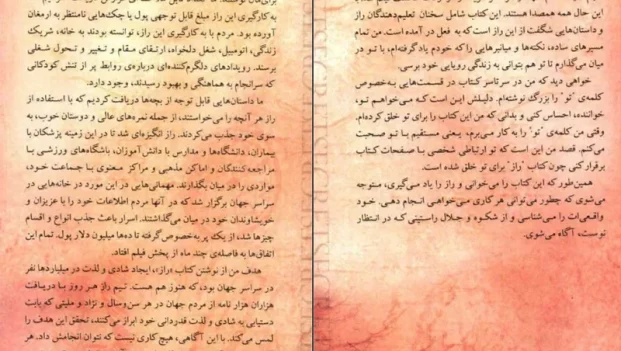 به‌کارگیری این راز مبلغ قابل توجهی پول یا چک‌هایی نامنتظر به ارمغان
آورده بود. مردم با به‌کارگیری این راز، توانسته بودند به خانه، شریک
زندگی، اتومبیل، شغل دلخواه، ارتقای مقام و تغییر و تحول شغلی
برسند. رویدادهای دلگرم‌کننده‌ای درباره‌ی روابط پر از تنش کودکانی
که سرانجام به هماهنگی و بهبود رسیدند، وجود دارد.
ما داستان‌هایی قابل توجه از بچه‌ها دریافت کردیم که با استفاده از
راز هر آنچه را می‌خواستند، از جمله نمره‌های عالی و دوستان خوب، به
سوی خود جذب می‌کردند. راز انگیزه‌ای شد تا در این زمینه پزشکان با
بیماران، دانشگاه‌ها و مدارس با دانش‌آموزان، باشگاه‌های ورزشی با
مراجعه‌کنندگان و اماکن مذهبی و مراکز معنوی با جماعت خود،
مواردی را در میان بگذارند. مهمانی‌هایی در این مورد در خانه‌هایی در
سراسر جهان برگزار شد که در آنها مردم اطلاعات خود را با عزیزان و
خویشاوندان خود در میان می‌گذاشتند. اسرار باعث جذب انواع و اقسام
چیزها شد، از یک پر به‌خصوص گرفته تا ده‌ها میلیون دلار پول. تمام این
اتفاق‌ها به فاصله‌ی چند ماه از پخش فیلم افتاد.
هدف من از نوشتن کتاب «راز»، ایجاد شادی و لذت در میلیاردها نفر
در سراسر جهان بود، که هنوز هم هست. تیم راز هر روز با دریافت
هزاران هزار نامه از مردم جهان در هر سن‌وسال و نژاد و ملیتی که بابت
دستیابی به شادی و لذت قدردانی خود ابراز می‌کنند، تحقق این هدف را
لمس می‌کند. با این آگاهی، هیچ کاری نیست که نتوان انجامش داد. هر
این حال همه همصدا هستند. این کتاب شامل سخنان تعلیم‌دهندگان راز
و داستان‌هایی شگفت از این راز است که به فعل در آمده است. من تمام
مسیرهای ساده، نکته‌ها و میانبرهایی را که خودم یاد گرفته‌ام، با تو در
میان می‌گذارم تا تو هم بتوانی به زندگی رویایی خود برسی.
خواهی دید که من در سرتاسر کتاب در قسمت‌هایی به‌خصوص
کلمه‌ی "تو" را بزرگ نوشته‌ام. دلیلش این است که می‌خواهم تو،
خواننده، احساس کنی و بدانی که من این کتاب را برای تو خلق کرده‌ام.
وقتی من کلمه‌ی "تو" را به کار می‌برم، یعنی مستقیم با تو صحبت
می‌کنم. قصد من این است که تو ارتباطی شخصی با صفحات کتاب
برقرار کنی چون کتاب "راز" برای تو خلق شده است.
همین‌طور که این کتاب را می‌خوانی و راز را یاد می‌گیری، متوجه
می‌شوی که چطور می‌توانی هر کاری می‌خواهی انجام دهی. خود
واقعی‌ات را می‌شناسی و از شکوه و جلال راستینی که در انتظار
توست، آگاه می‌شوی.